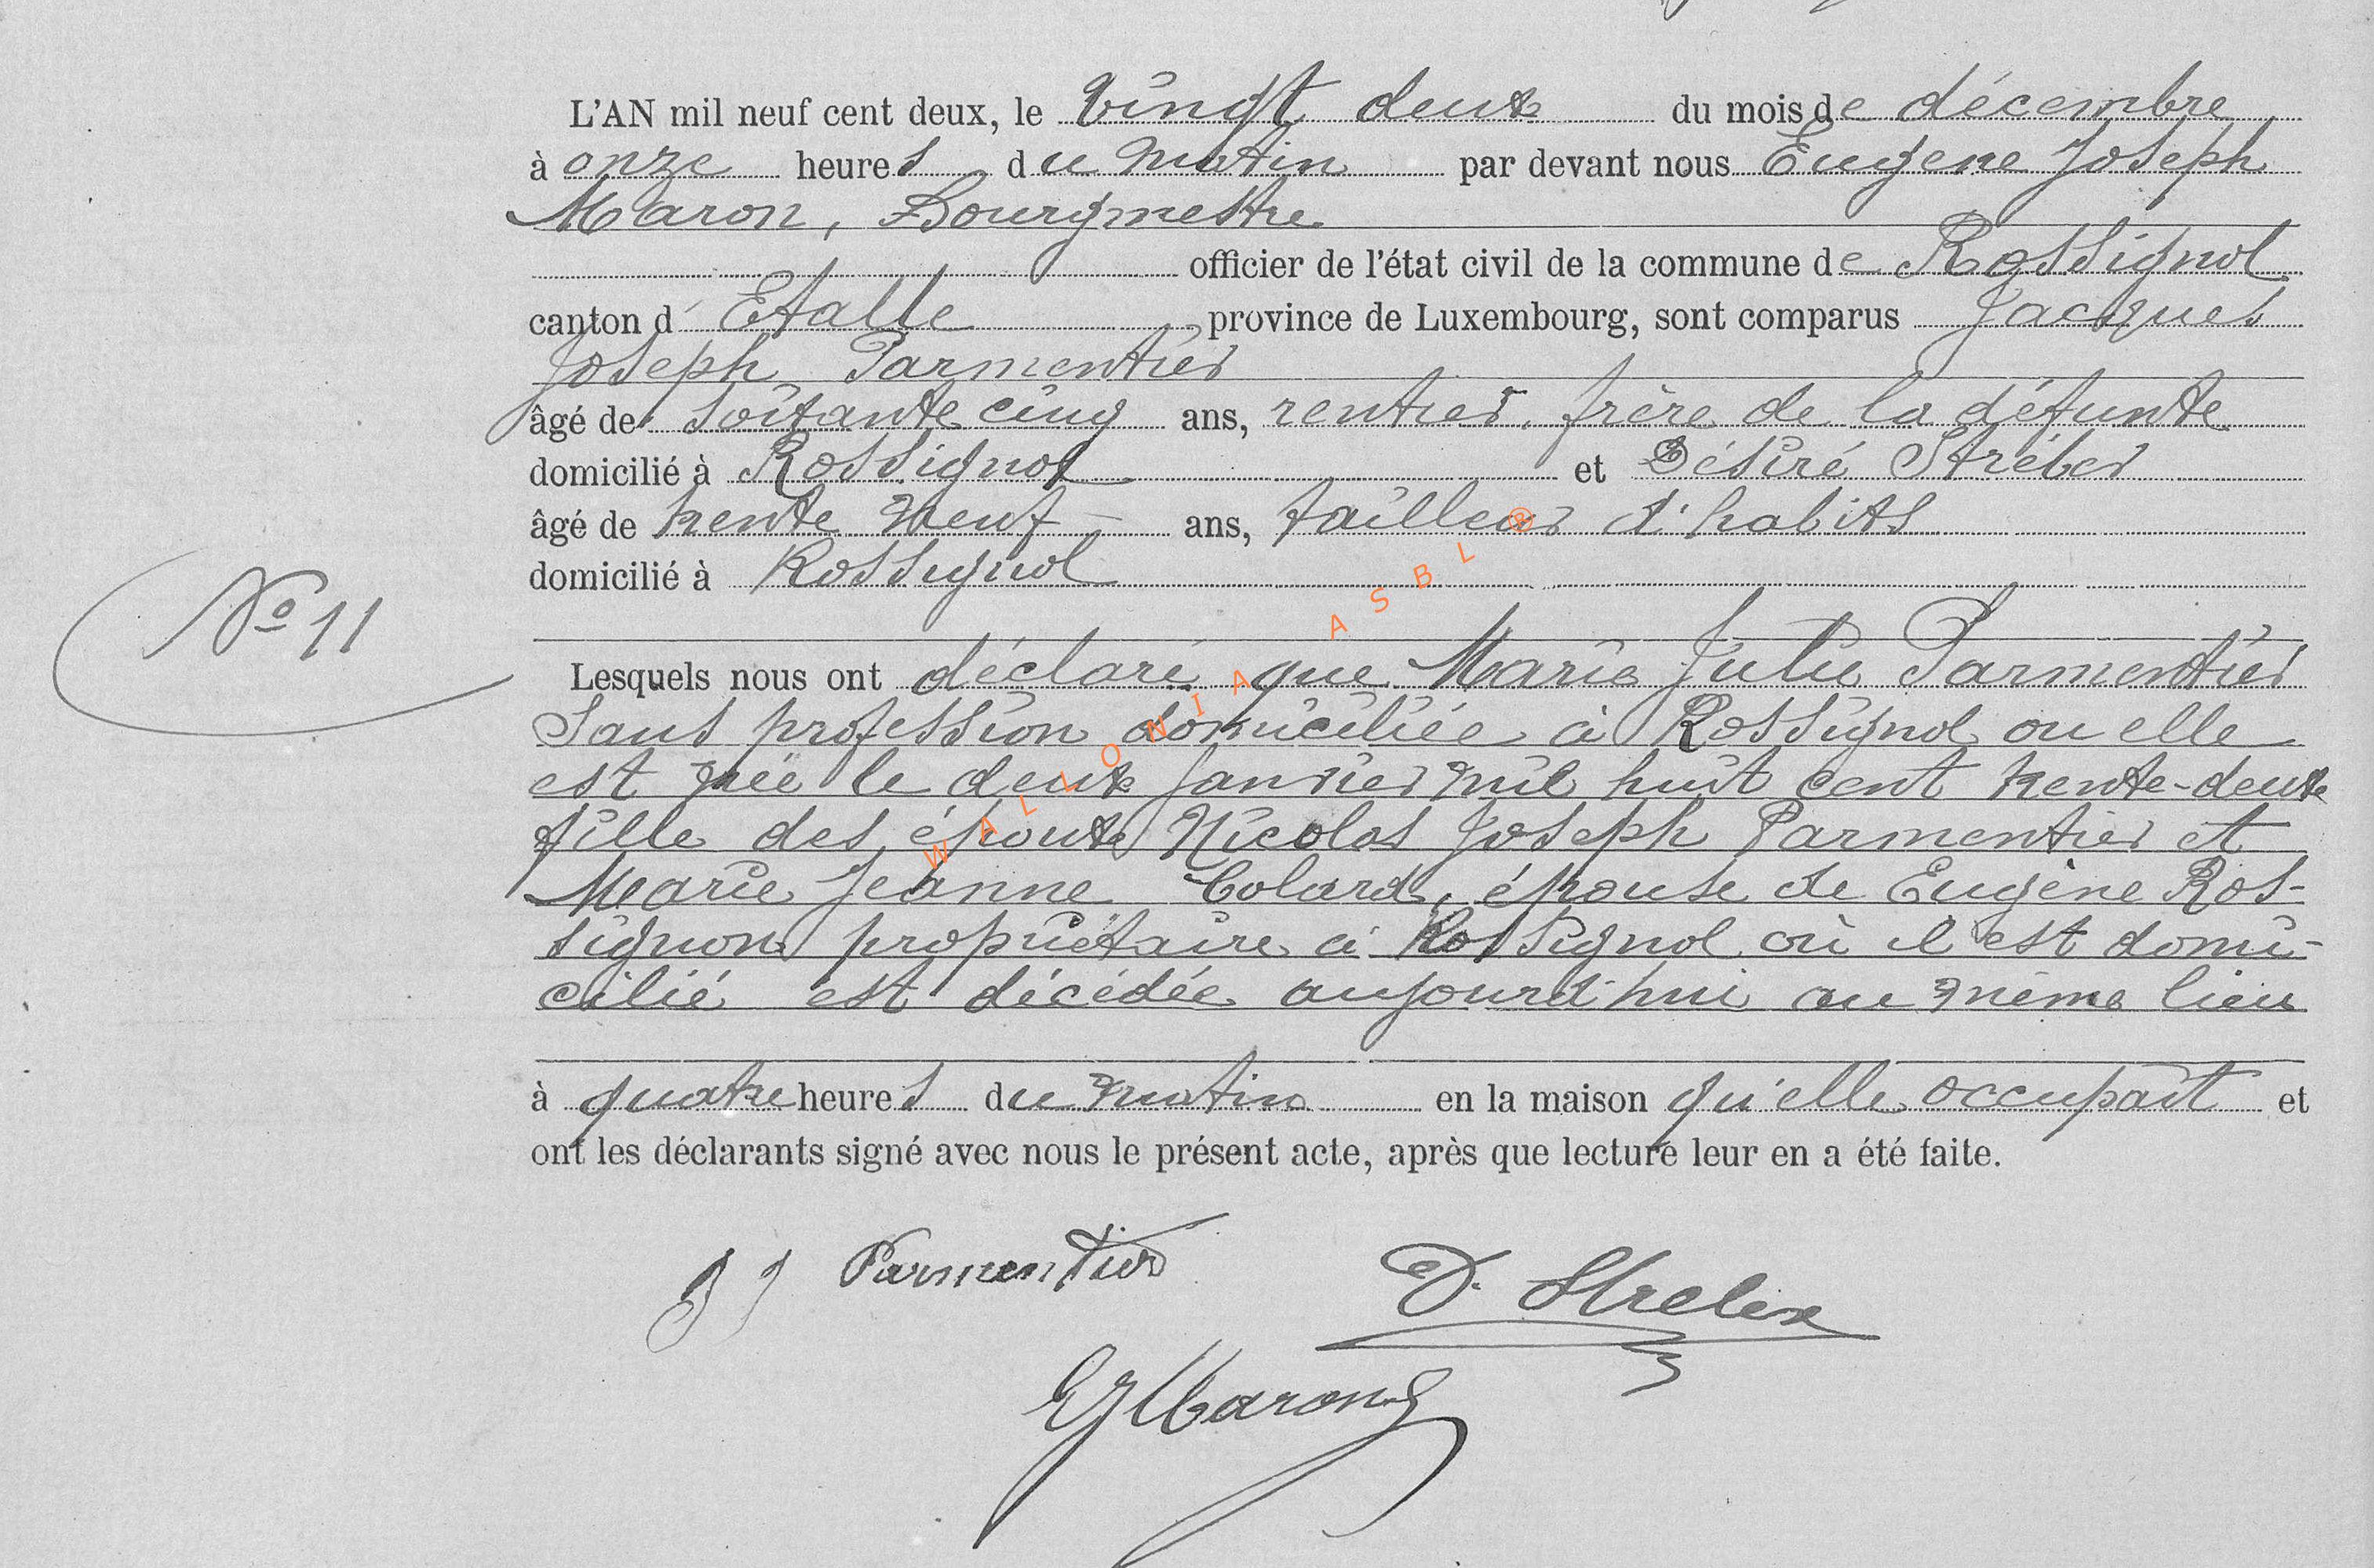 L'AN mil neuf cent deux, le vingt deux du mois de décembre
à onze heures du matin par devant nous Eugène Joseph
Maron, Bourgmestre
officier de l'état civil de la commune de Rossignol
canton d'Etalle, province de Luxembourg, sont comparus Jacques
Joseph Parmentier
âgé de soixante cinq ans, rentier, frère de la défunte
domicilié à Rossignol et Désiré Stréber
âgé de trente neuf ans, tailleur d'habits
domicilié à Rossignol
No 11
Lesquels nous ont déclaré que Marie Julie Parmentier
sans profession domiciliée à Rossignol ou elle
est née le deux janvier mil huit cent trente-deux
fille des époux Nicolas Joseph Parmentier et
Marie Jeanne Colard, épouse de Eugène Ros-
signon propriétaire à Rossignol où il est domi-
cilié est décédée aujourd'hui au même lieu
à quatre heures du matin en la maison qu'elle occupait et
ont les déclarants signé avec nous le présent acte, après que lecture leur en a été faite.
JJ Parmentier
D. Streber
EJMaron
WALLONIA ASBL ®